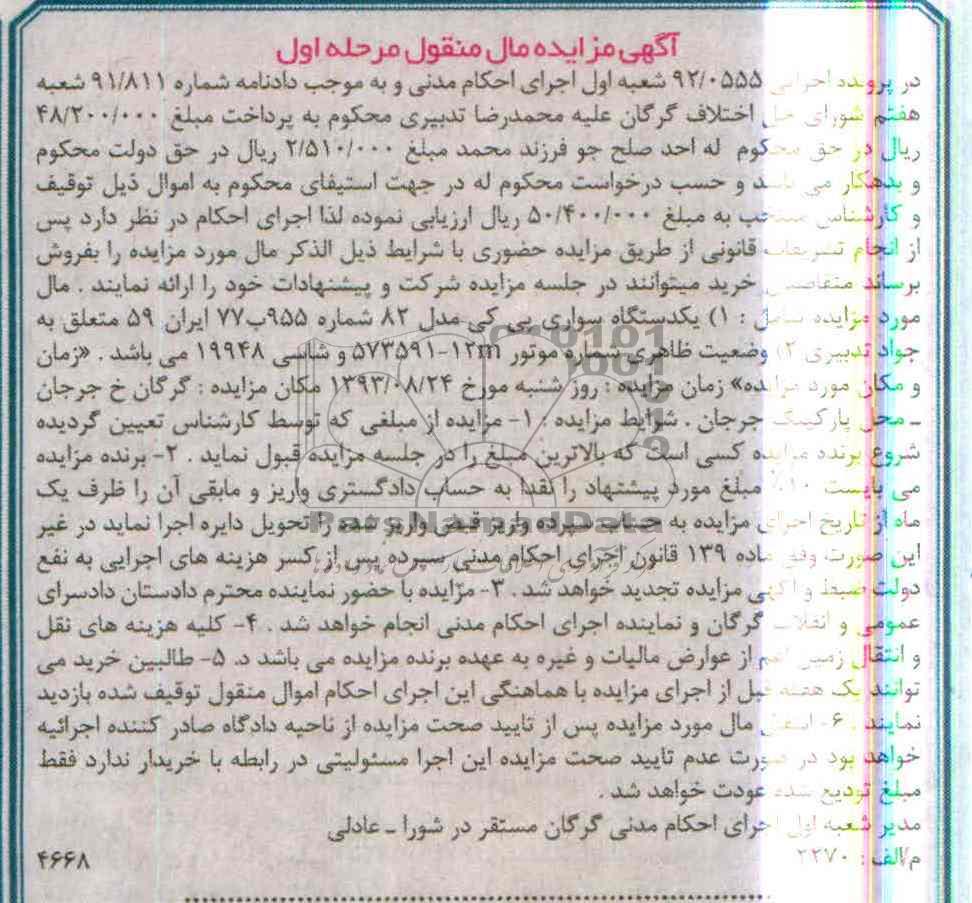 آگهی مزایده مال منقول مرحله اول
در پرونده اجرایی ۹۲/۰۵۵۵ شعبه اول اجرای احکام مدنی و به موجب دادنامه شماره ۹۱/۸۱۱ شعبه
هفتم شورای حل اختلاف گرگان علیه محمدرضا تدبیری محکوم به پرداخت مبلغ ۴۸/۲۰۰/۰۰۰
ریال در حق محکوم له احد صلح جو فرزند محمد مبلغ ۲/۵۱۰/۰۰۰ ریال در حق دولت محکوم
و بدهکار می باشد و حسب درخواست محکوم له در جهت استیفای محکوم به اموال ذیل توقیف
و کارشناس منتخب به مبلغ ۵۰/۴۰۰/۰۰۰ ریال ارزیابی نموده لذا اجرای احکام در نظر دارد پس
از انجام تشریفات قانونی از طریق مزایده حضوری با شرایط ذیل الذکر مال مورد مزایده را بفروش
برساند متقاضیین خرید میتوانند در جلسه مزایده شرکت و پیشنهادات خود را ارائه نمایند . مال
مورد مزایده شامل : ۱) یکدستگاه سواری پی کی مدل ۸۲ شماره ۹۵۵ب۷۷ ایران ۵۹ متعلق به
جواد تدبیری ۲) وضعیت ظاهری شماره موتور ۱۲m-۵۷۳۵۹۱ و شاسی ۱۹۹۴۸ می باشد . «زمان
و مکان مورد مزایده» زمان مزایده : روز شنبه مورخ ۱۳۹۳/۰۸/۲۴ مکان مزایده : گرگان خ جرجان
ـ محل پارکینگ جرجان . شرایط مزایده : ۱- مزایده از مبلغی که توسط کارشناس تعیین گردیده
شروع برنده مزایده کسی است که بالاترین مبلغ را در جلسه مزایده قبول نماید . ۲- برنده مزایده
می بایست ۱۰٪ مبلغ مورد پیشنهاد را نقدا به حساب دادگستری واریز و مابقی آن را ظرف یک
ماه از تاریخ اجرای مزایده به حساب سپرده واریز قبض واریز شده را تحویل دایره اجرا نماید در غیر
این صورت وفق ماده ۱۳۹ قانون اجرای احکام مدنی سپرده پس از کسر هزینه های اجرایی به نفع
دولت ضبط و آگهی مزایده تجدید خواهد شد . ۳- مزایده با حضور نماینده محترم دادستان دادسرای
عمومی و انقلاب گرگان و نماینده اجرای احکام مدنی انجام خواهد شد . ۴- کلیه هزینه های نقل
و انتقال زمین اعم از عوارض مالیات و غیره به عهده برنده مزایده می باشد د. ۵- طالبین خرید می
توانند یک هفته قبل از اجرای مزایده با هماهنگی این اجرای احکام اموال منقول توقیف شده بازدید
نمایند . ۶- انتقال مال مورد مزایده پس از تایید صحت مزایده از ناحیه دادگاه صادر کننده اجرائیه
خواهد بود در صورت عدم تایید صحت مزایده این اجرا مسئولیتی در رابطه با خریدار ندارد فقط
مبلغ تودیع شده عودت خواهد شد .
مدیر شعبه اول اجرای احکام مدنی گرگان مستقر در شورا ـ عادلی
م/الف : ۲۲۷۰
۴۶۶۸
ParsNamadData